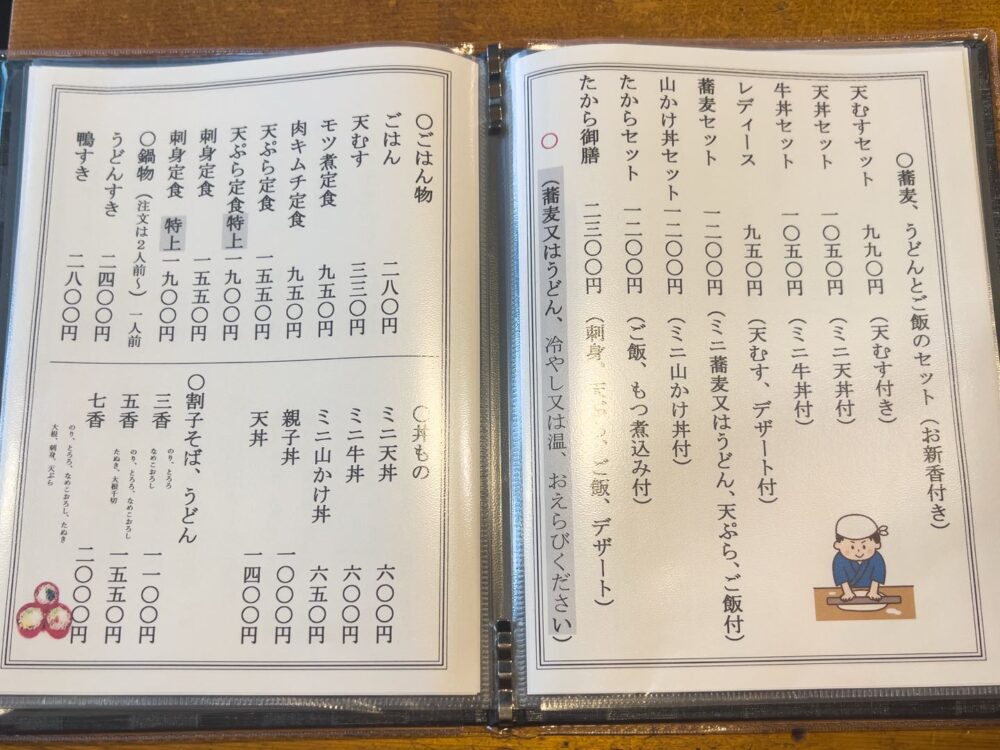 〇蕎麦、うどんとご飯のセット（お新香付き）
天むすセット 九九〇円（天むす付き）
天丼セット 一〇五〇円（ミニ天丼付）
牛丼セット 一〇五〇円（ミニ牛丼付）
レディース 九五〇円（天むす、デザート付）
蕎麦セット 一二〇〇円（ミニ蕎麦又はうどん、天ぷら、ご飯付）
山かけ丼セット 一二〇〇円（ミニ山かけ丼付）
たからセット 一二〇〇円（ご飯、もつ煮込み付）
たから御膳 二三〇〇円（刺身、天ぷら、ご飯、デザート）
〇（蕎麦又はうどん、冷やし又は温、おえらびください）
〇ごはん物
ごはん 二八〇円
天むす 三三〇円
モツ煮定食 九五〇円
肉キムチ定食 九五〇円
天ぷら定食 一五五〇円
天ぷら定食特上 一九〇〇円
刺身定食 一五五〇円
刺身定食 特上 一九〇〇円
〇鍋物（注文は２人前〜）一人前
うどんすき 二四〇〇円
鴨すき 二八〇〇円
〇丼もの
ミニ天丼 六〇〇円
ミニ牛丼 六〇〇円
ミニ山かけ丼 六五〇円
親子丼 一〇〇〇円
天丼 一四〇〇円
〇割子そば、うどん
三香 のり、とろろ 一一〇〇円
なめこおろし
五香 のり、とろろ、なめこおろし 一五五〇円
たぬき、大根千切
七香 のり、とろろ、なめこおろし、たぬき 二〇〇〇円
大根、刺身、天ぷら